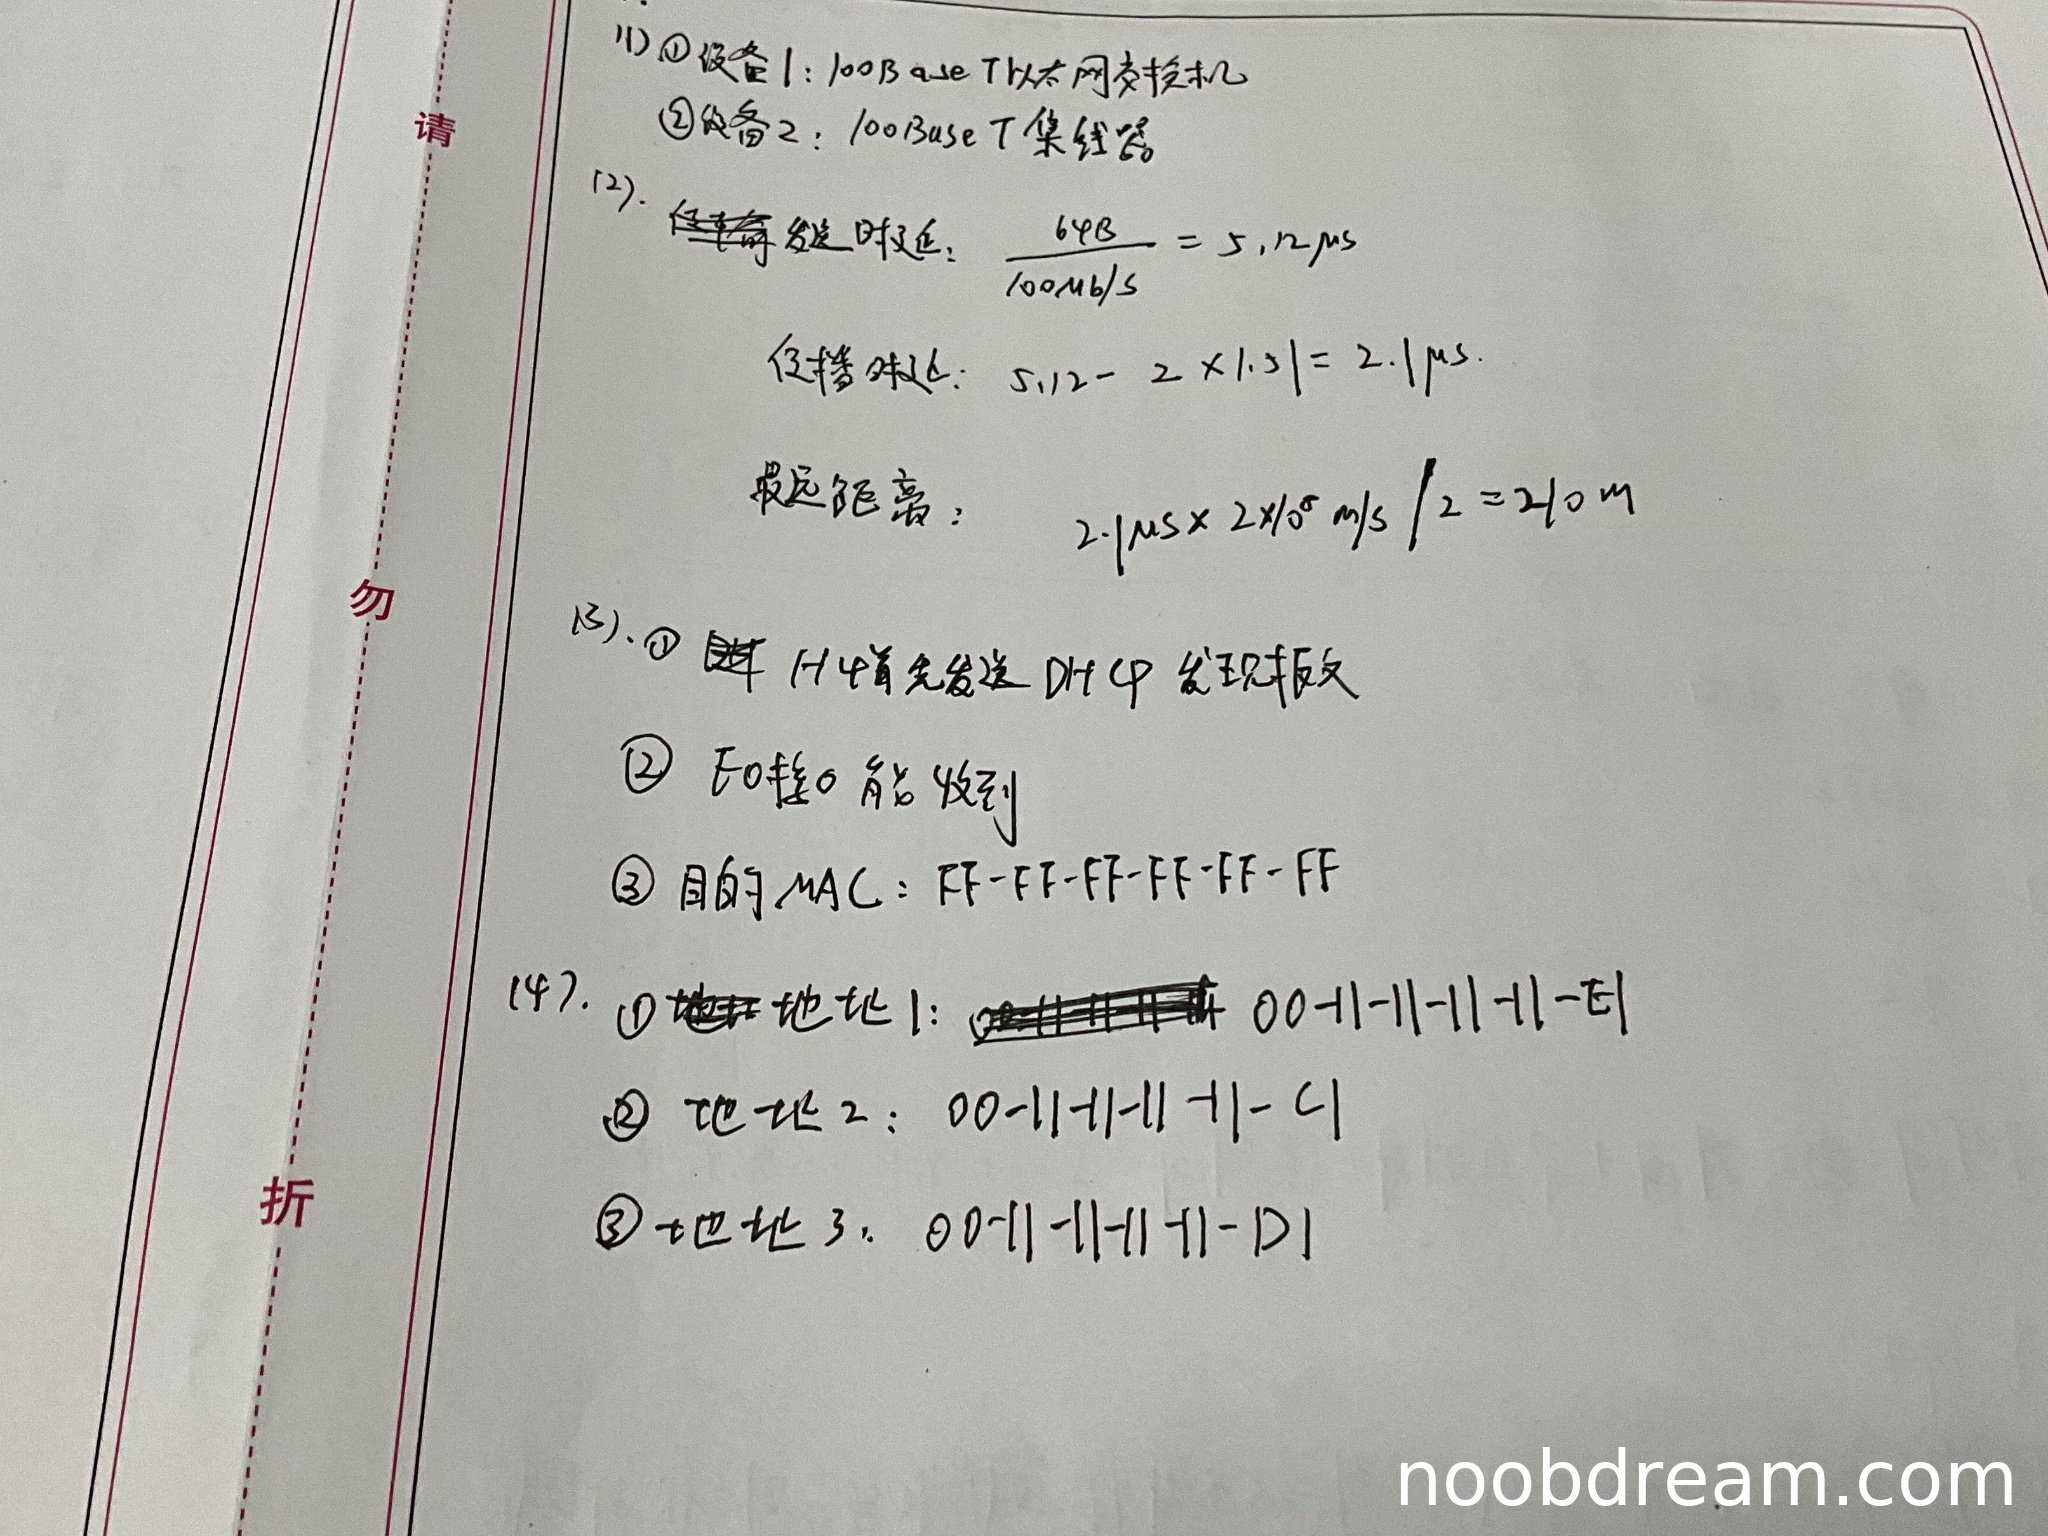 (1) ① 设备1: 100Base T以太网交换机
② 设备2: 100Base T 集线器
(2). 发送时延: 64B / 100Mb/s = 5.12μs
传播时延: 5.12 - 2 × 1.51 = 2.1μs.
最远距离: 2.1μs × 2×10⁸ m/s / 2 = 210m
(3). ① H4首先发送 DHCP 发现报文
② E0接口 能收到
③ 目的MAC: FF-FF-FF-FF-FF-FF
(4). ① 地址1: 00-11-11-11-11-E1
② 地址2: 00-11-11-11-11-C1
③ 地址3: 00-11-11-11-11-D1
请
勿
折
noobdream.com